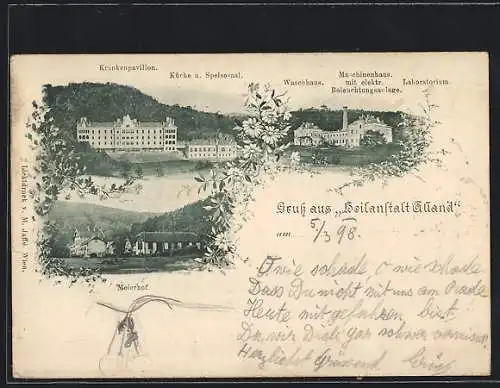 Krankenpavillon.
Küche u. Speisesaal.
Waschhaus.
Maschinenhaus.
mit elektr.
Beleuchtungsanlage.
Laboratorium.
Lichtdruck v. M. Jaffé, Wien.
Gruß aus „Heilanstalt Alland“
am 5/3 98.
Meierhof.
O wie schade, o wie schade
Dass Du nicht mit uns am Rade
Heute mit gefahren bist.
Da wir Dich gar schwer vermisst.
Herzlichst Grüssend